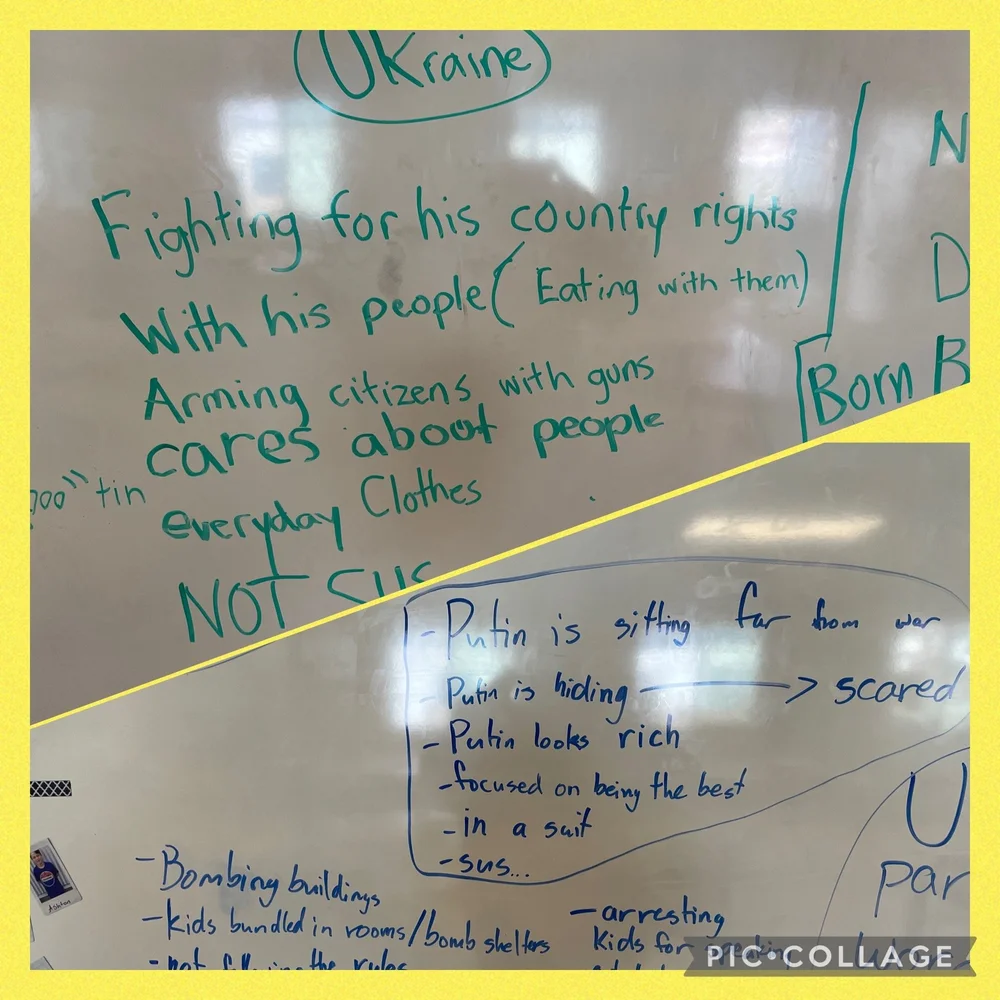 Ukraine
Fighting for his country rights
With his people (Eating with them)
Arming citizens with guns
cares about people
everyday Clothes
NOT SUS
tin
N
D
Born B
- Putin is sitting far from war
- Putin is hiding → scared
- Putin looks rich
- focused on being the best
- in a suit
- sus...
- Bombing buildings
- Kids bundled in rooms/bomb shelters
- not following the rules
- arresting
Kids for speaking
U
par
PIC•COLLAGE